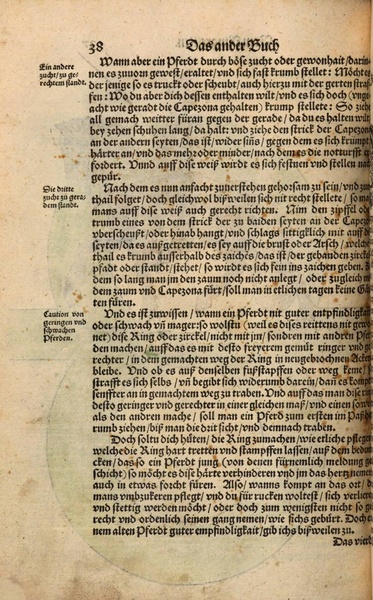 38 Das ander Buch
Ein andere
zucht/ zu ge-
rechtem standt.
Wann aber ein Pferdt durch böse zucht oder gewonhait/ darin-
nen es zuuorn gewest/ eraltet/ vnd sich fast krumb stellet: Möchte
der jenige so es truckt oder scheubt/ auch hierzu mit der gerten stra
fen: Wo du aber dich dessen enthalten wilt/ vnd es sich doch (vnge
acht wie geradt die Capezona gehalten) krump stellete: So ziehe
all gemach weitter füran gegen der gerade/ da du es halten wilt
bey zehen schuhen lang/ da halt: vnd ziehe den strick der Capezona
an der andern seyten/ das ist/ wider sins/ gegen dem es sich krumpt
härter an/ vnd das mehr oder minder/ nach dem es die notturfft er
fordert. Vnnd auff dise weiß wirdt es sich setznen vnd stellen na
gepür.
Die dritte
zucht zu gera-
dem standt.
Nach dem es nun anfacht zuuerstehen gehorsam zu sein/ vnd zum
thail folget/ doch gleichwol bißweilen sich nit recht stellete/ so ma
mans auff dise weiß auch gerecht richten. Nim den zipffel o
trumb eines von dem strick der zu baiden seyten an der Capez
vberscheußt/ oder hinab hangt/ vnd schlags sittigklich mit auff d
seyten/ da es außgetretten/ es sey auff die brust oder Arsch/ welche
thail es krumb ausserhalb des zaichẽs/ das ist/ der gehanden zircks
pfadt oder standt/ stehet/ so wirdt es sich fein ins zaichen geben.
dem so lang man jm den zaum noch nicht anlegt/ oder zugleich m
dem zaum vnd Capezona fürt/ soll man in etlichen tagen keine G
ten füren.
Caution von
geringen vnd
schwachen
Pferden.
Vnd es ist zuwissen/ wann ein Pferdt nit guter entpfindligk
oder schwach vñ mager: so wolstu (weil es dises reittens nit gew
net) dise Ring oder zirckel/ nicht mit jm/ sondern mit andern Pfe
den machen/ auff das es mit desto freyerem gemüt ringer vnd g
rechter/ in dem gemachten weg der Ring in neugebrochnen Acker
bleibe. Vnd ob es auß denselben fußstapffen oder weg keme/
strafft es sich selbs/ vñ begibt sich widerumb darein/ dañ es komp
senffter an in gemachtem weg zu traben. Vnd auff das man dise ri
desto geringer vnd gerechter in einer gleichen maß/ vnd einen so w
als den andern mache/ soll man ein Pferd zum ersten in Paß
rumb ziehen/ biß man die dait sicht/ vnd demnach traben.
Doch soltu dich hüten/ die Ring zumachen/ wie etliche pflege
welche die Ring hart tretten vnd stampffen lassen/ auß dem beden
cken/ das so ein Pferdt jung (von denen fürnemlich meldung ge
schicht) so möcht es dise härte verhindern vnd jm das hertz nemen
auch in etwas forcht füren. Also/ wanns kompt an das ort/ d
mans vmbzukeren pflegt/ vnd du für rucken woltest/ sich verliern
vnd stettig werden möcht/ oder doch zum wenigsten nicht so ge
recht vnd ordenlich seinen gang nemen/ wie sichs gebürt. Doch
nem alten Pferdt guter empfindligkait/ gib ichs bißweilen zu.
Das vierd